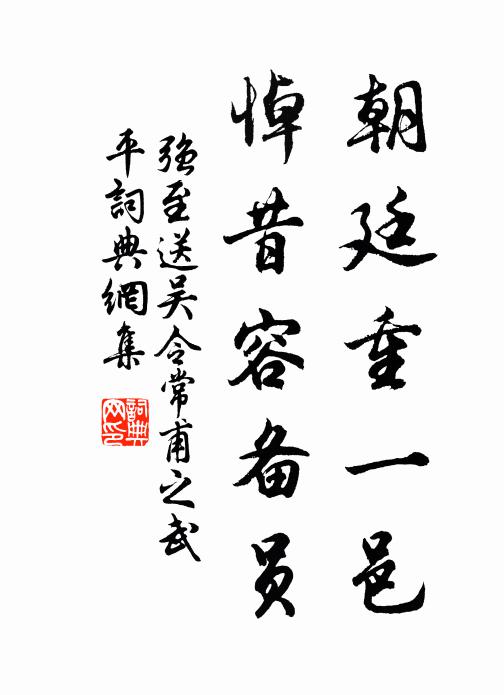 朝廷重一邑
悼昔容备员
强至送吴令常甫之武
平詞典網集
詞典
网印